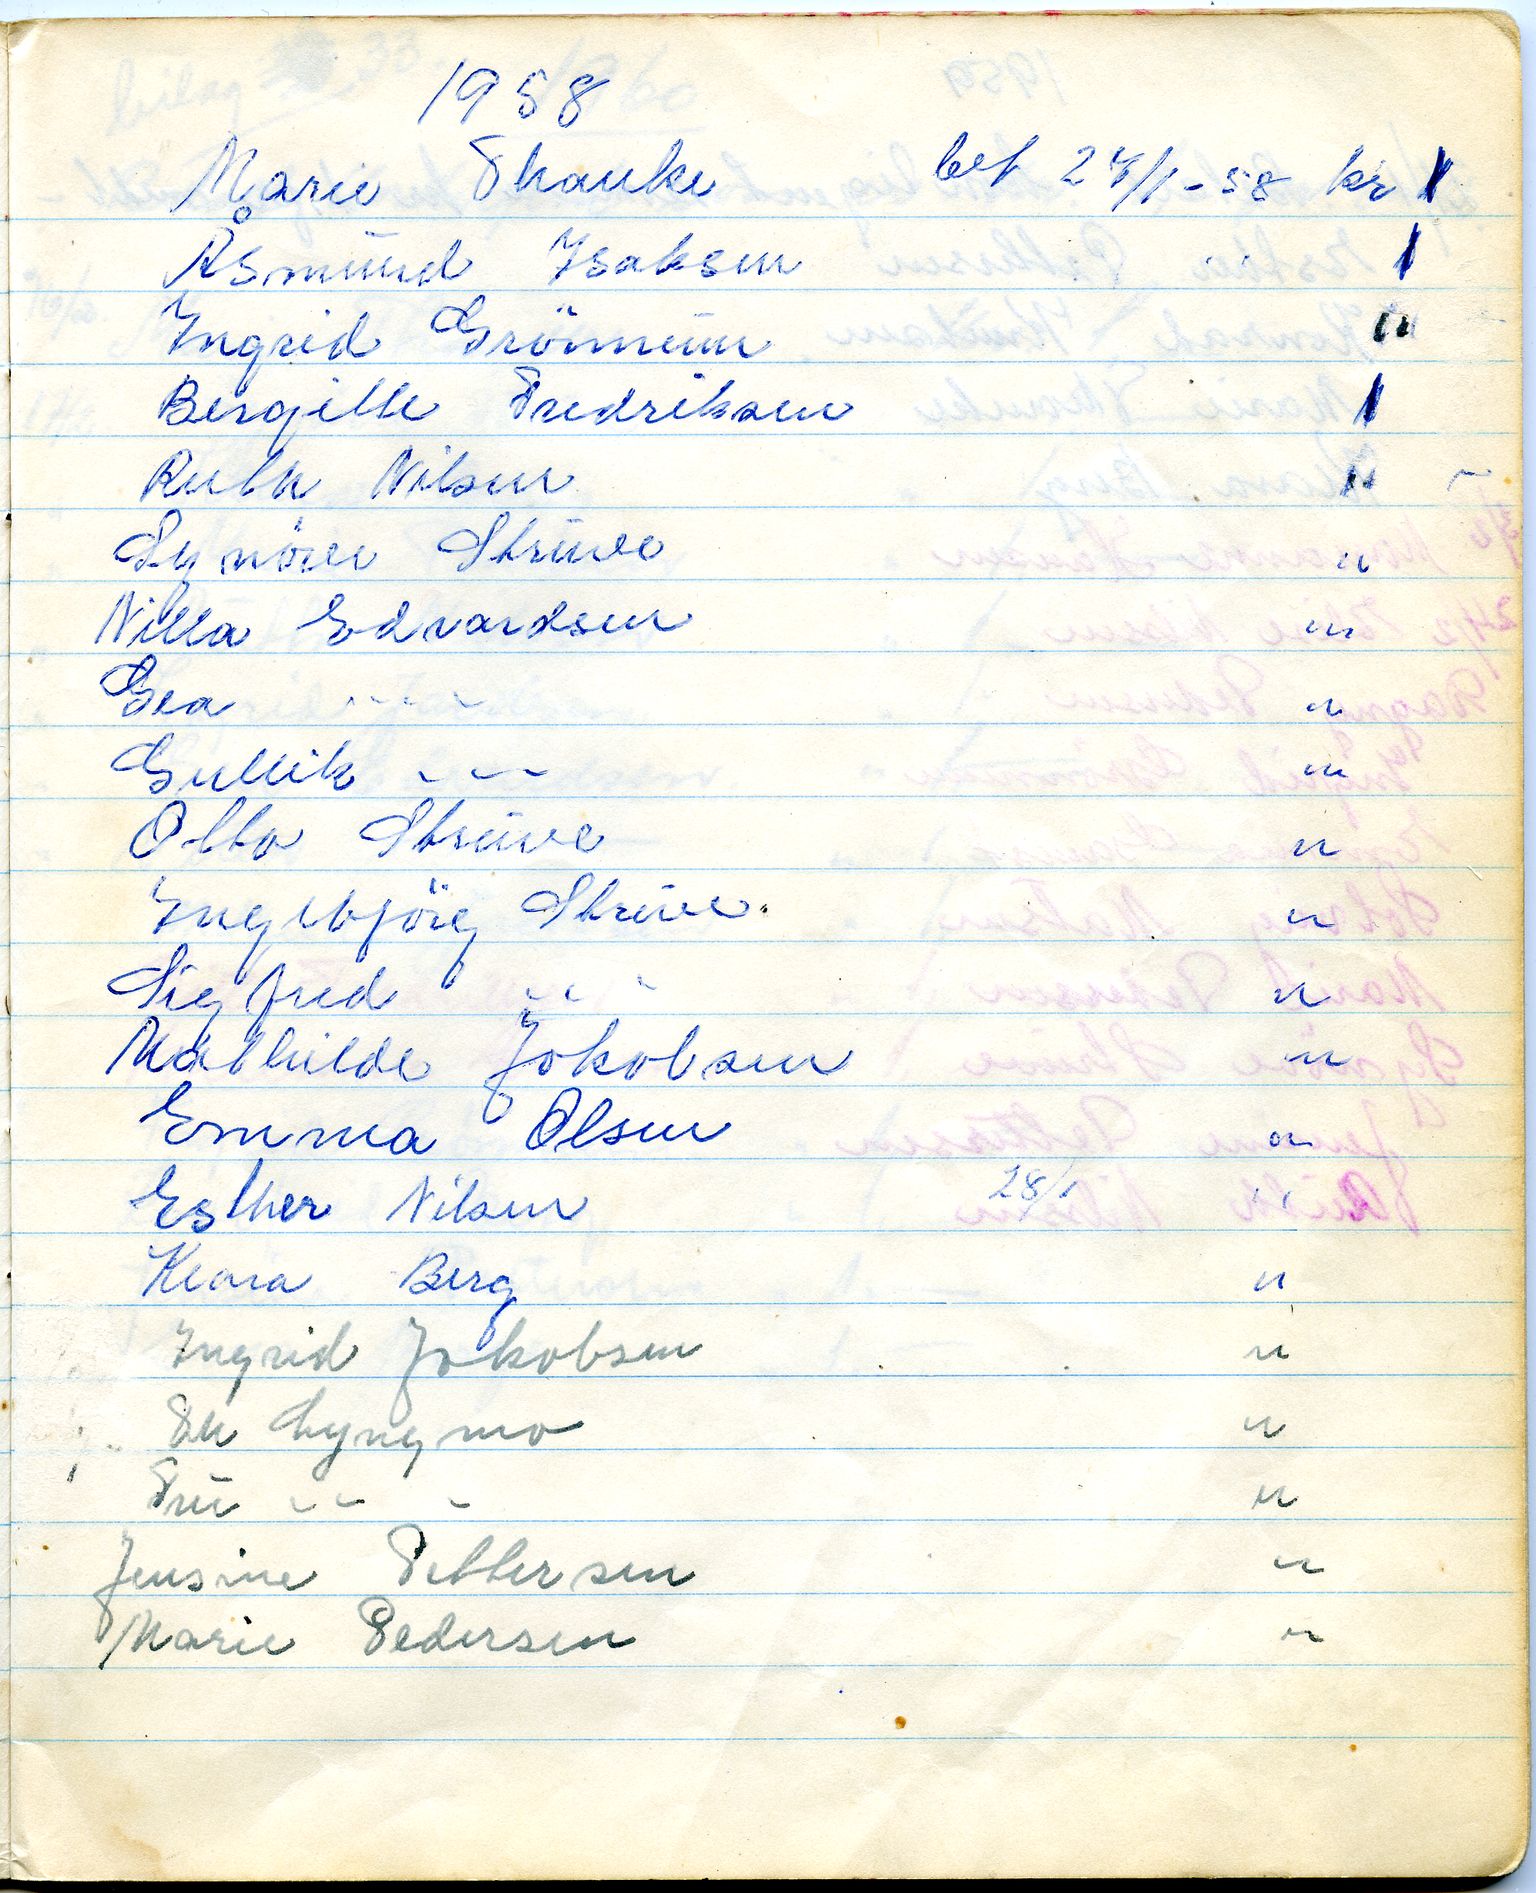 1958
Marie Thauke bet 24/1-58 kr 1
Åsmund Isaksen 1
Ingrid Grönmüm "
Bergitte Fredriksen 1
Ruth Nilsen "
Synöve Strüve "
Nilla Edvardsen "
Gea - - - - "
Gullik - - - "
Otto Strüve "
Ingebjörg Strüve. "
Sigfred - - - "
Mathilde Jakobsen "
Emma Olsen "
Esther Nilsen 28/1 "
Klara Berg "
Ingrid Jakobsen "
Lyngmo "
Frü - - - "
Jensine Pettersen "
Marie Pedersen "